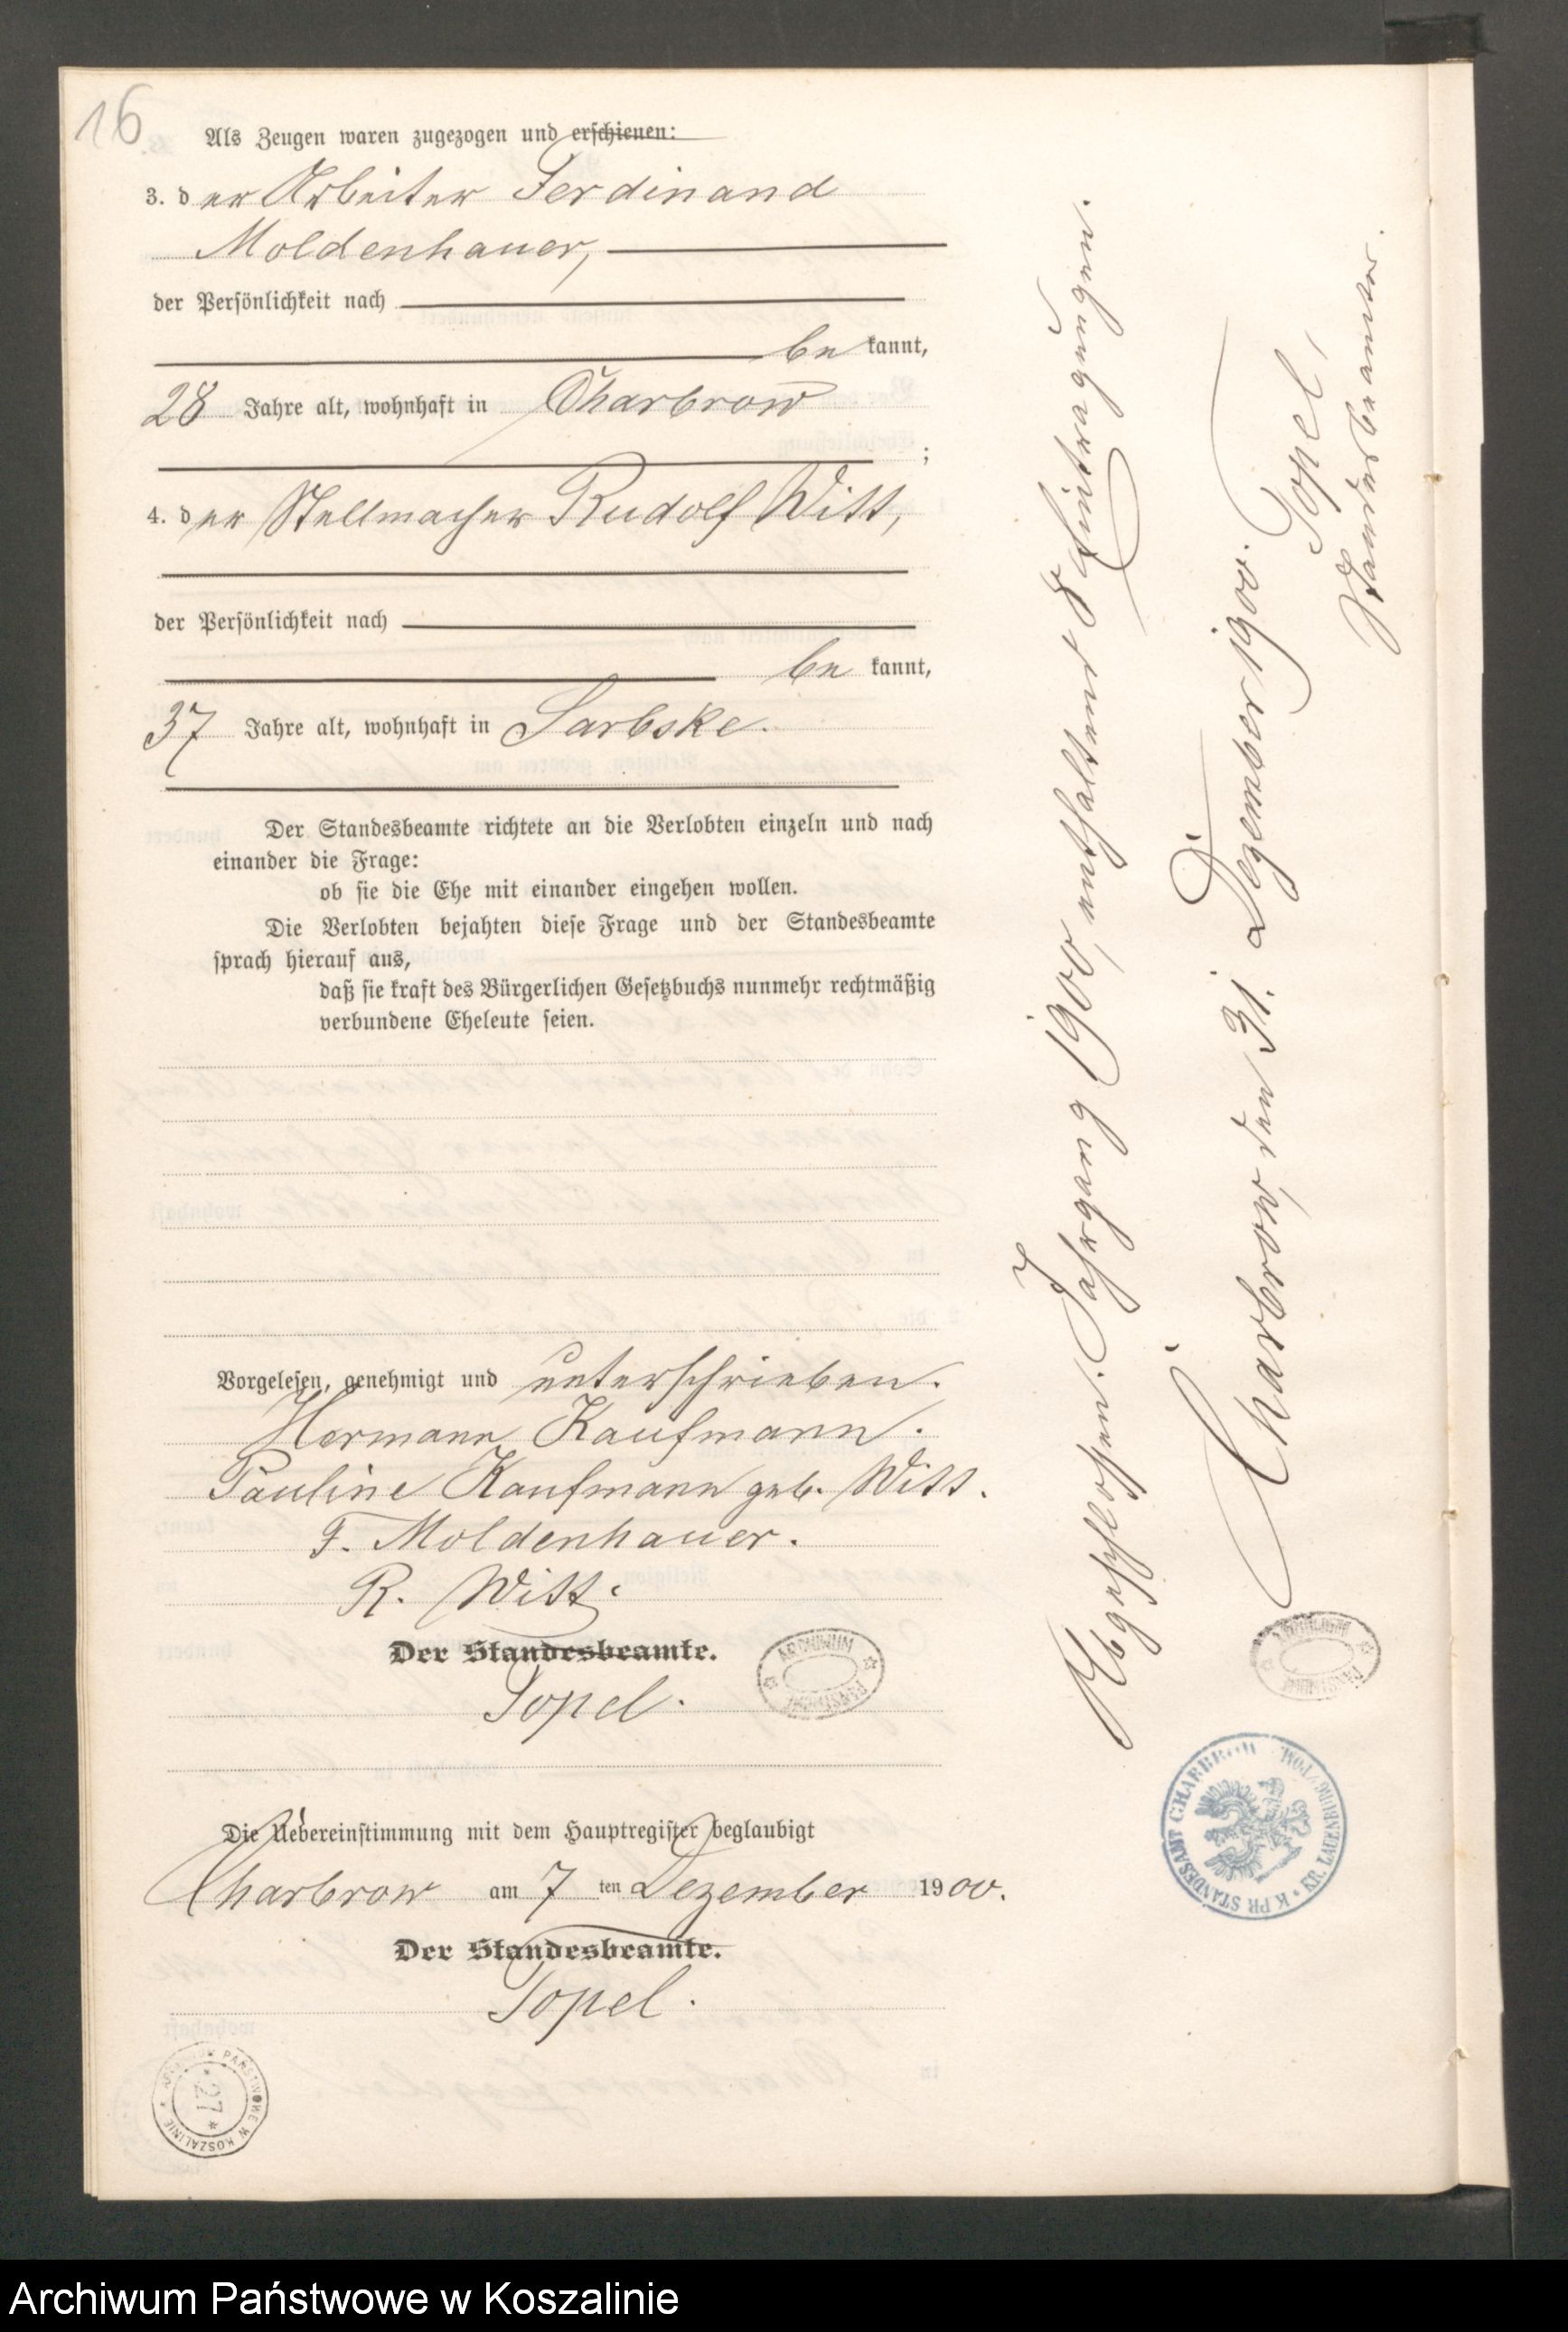 16
Als Zeugen waren zugezogen und erschienen:
3. der Arbeiter Ferdinand
Moldenhauer,
der Persönlichkeit nach
be kannt,
28 Jahre alt, wohnhaft in Charbrow
;
4. der Stellmacher Rudolf Witt,
der Persönlichkeit nach
be kannt,
37 Jahre alt, wohnhaft in Sarbske.
Der Standesbeamte richtete an die Verlobten einzeln und nach
einander die Frage:
ob sie die Ehe mit einander eingehen wollen.
Die Verlobten bejahten diese Frage und der Standesbeamte
sprach hierauf aus,
daß sie kraft des Bürgerlichen Gesetzbuchs nunmehr rechtmäßig
verbundene Eheleute seien.
Vorgelesen, genehmigt und unterschrieben.
Hermann Kaufmann.
Pauline Kaufmann geb. Witt.
F. Moldenhauer.
R. Witt.
Der Standesbeamte.
Popel.
ARCHIWUM PAŃSTWOWE
Die Uebereinstimmung mit dem Hauptregister beglaubigt
Charbrow am 7 ten Dezember 1900.
Der Standesbeamte.
Popel.
ARCHIWUM PAŃSTWOWE W KOSZALINIE * 27 *
Abgeschlossen. Jahrgang 1900, enthaltend 8 Eintragungen.
Charbrow, den 31. Dezember 1900.
Popel,
Standesbeamter.
ARCHIWUM PAŃSTWOWE
K PR STANDESAMT CHARBROW KR. LAUENBURG / POM.
Archiwum Państwowe w Koszalinie